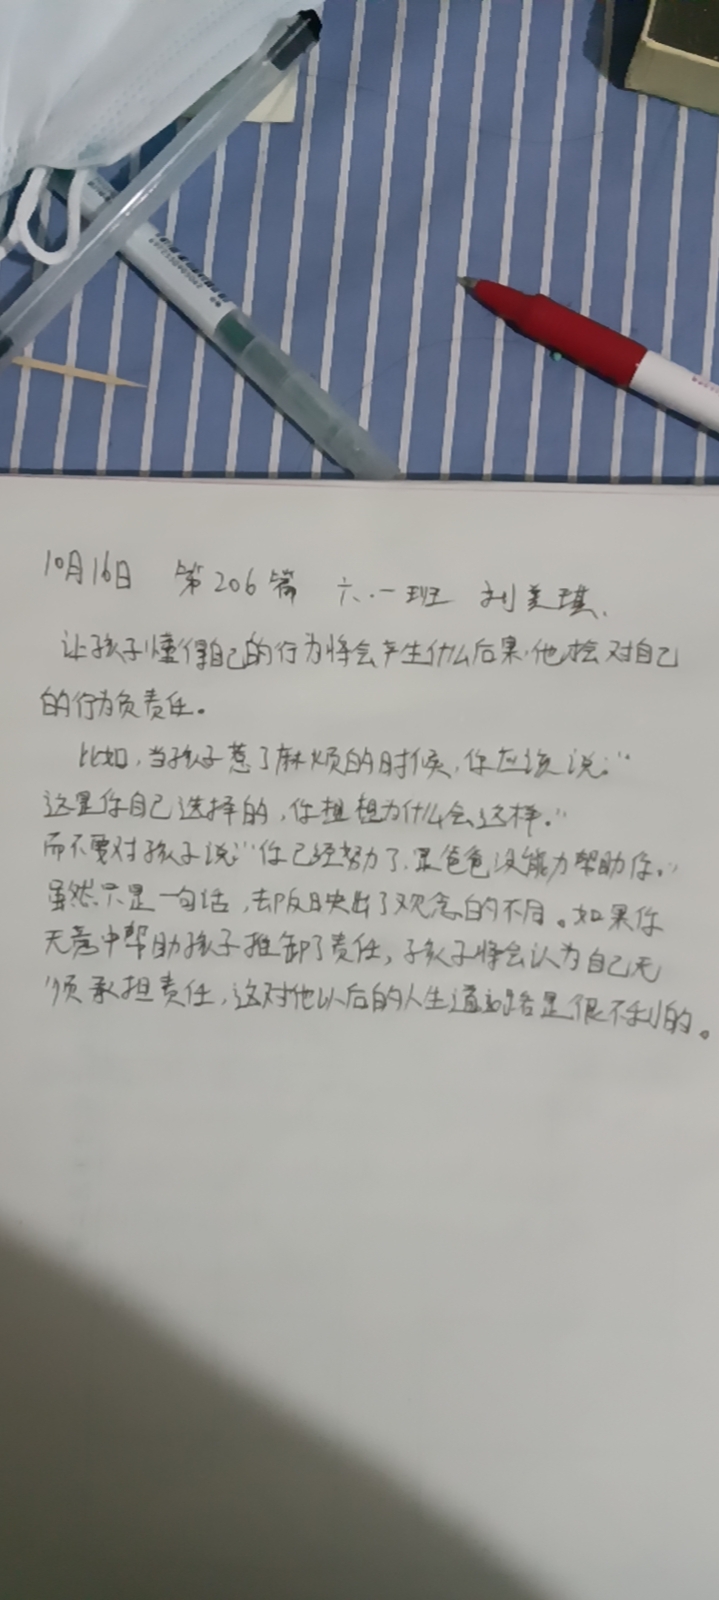 10月16日 第206篇 六.一班 刘美琪.
让孩子懂得自己的行为将会产生什么后果.他才会对自己
的行为负责任。
比如,当孩子惹了麻烦的时候,你应该说:“
这是你自己选择的,你想想为什么会这样.”
而不要对孩子说:“你已经努力了.是爸爸没能力帮助你.”
虽然只是一句话,却反映出了观念的不同。如果你
无意中帮助孩子推卸了责任,孩子将会认为自己无
须承担责任,这对他以后的人生道路是很不利的。